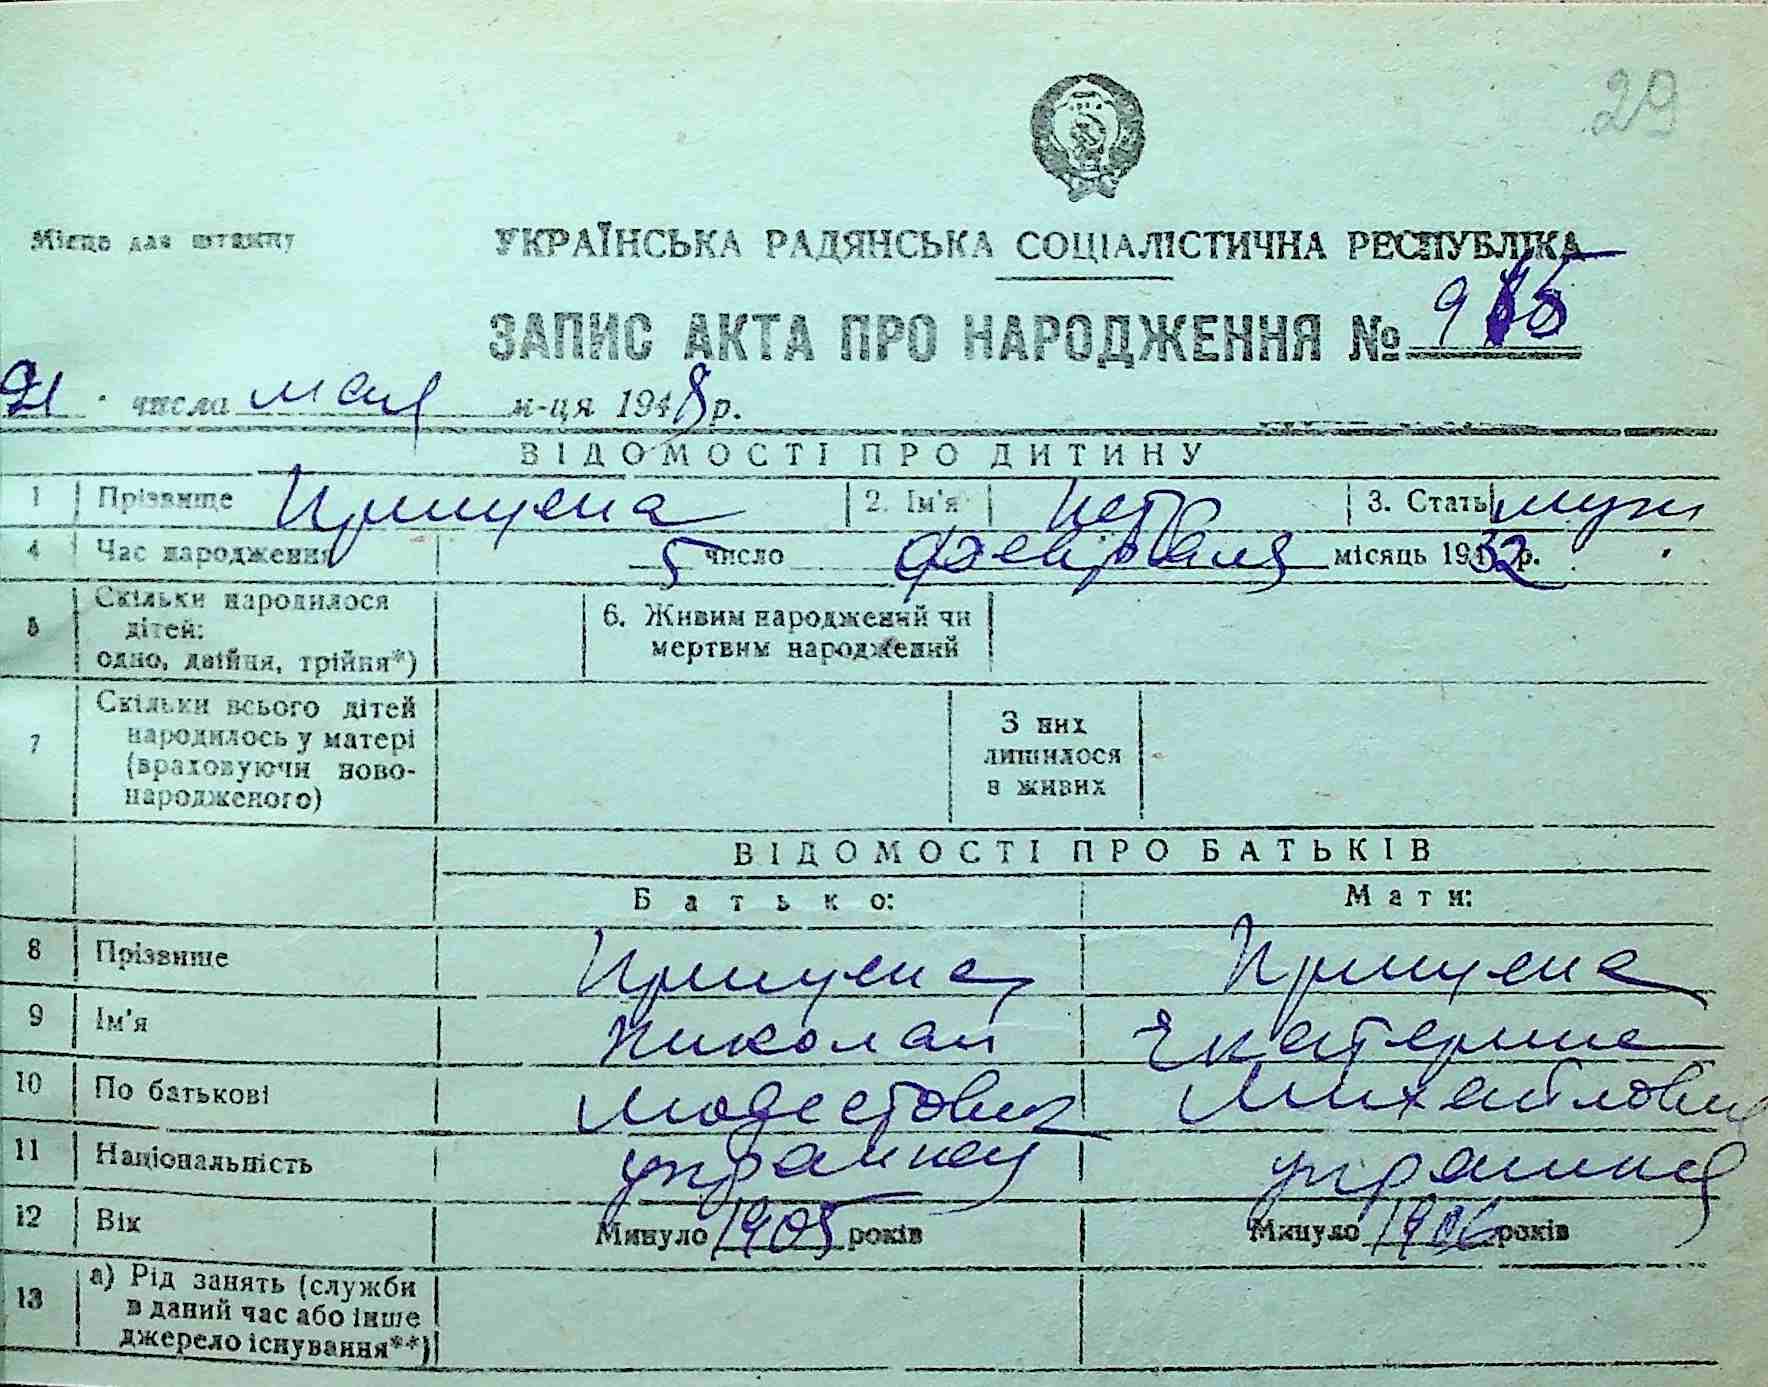 29
Місце для штампу
УКРАЇНСЬКА РАДЯНСЬКА СОЦІАЛІСТИЧНА РЕСПУБЛІКА
ЗАПИС АКТА ПРО НАРОДЖЕННЯ №
21 числа мая м-ця 1948 р.
ВІДОМОСТІ ПРО ДИТИНУ
1 Прізвище 2. Ім'я Петр 3. Стать муж
4 Час народження 5 число февраля місяць 1932 р.
5 Скільки народилося дітей: одно, двійня, трійня*) 6. Живим народжений чи мертвим народжений
7 Скільки всього дітей народилось у матері (враховуючи ново-народженого) З них лишилося в живих
ВІДОМОСТІ ПРО БАТЬКІВ
Батько: Мати:
8 Прізвище
9 Ім'я Николай Екатерина
10 По батькові Модестович Михайловна
11 Національність украинец украинка
12 Вік Минуло 1905 років Минуло 1906 років
13 а) Рід занять (служби в даний час або інше джерело існування**)